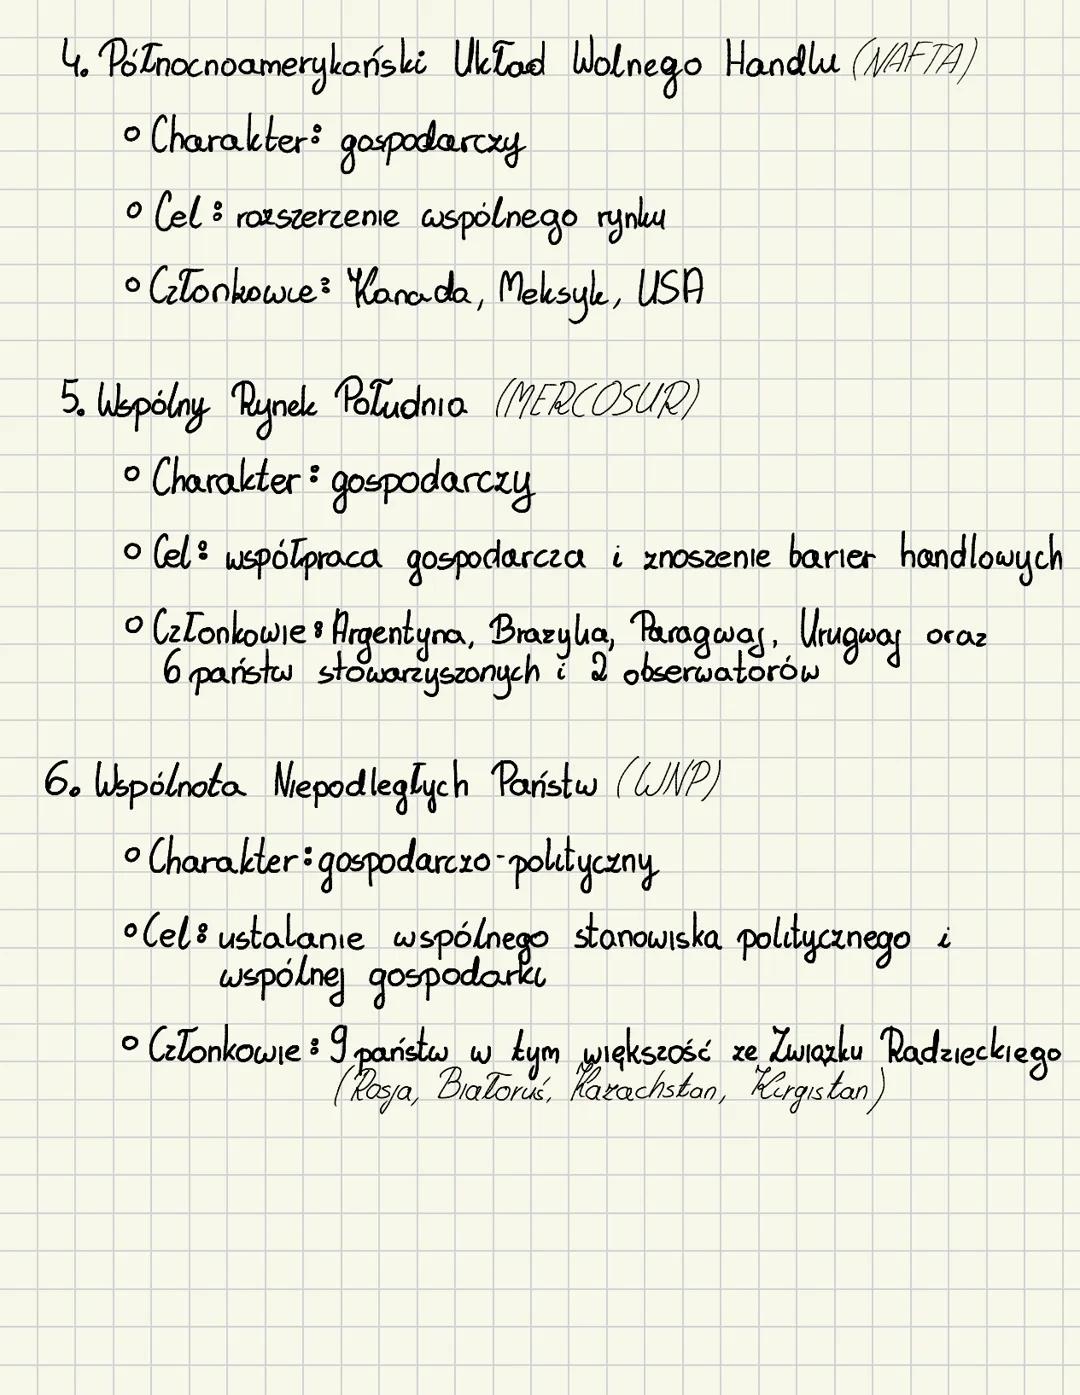 4. Północnoamerykański Układ Wolnego Handlu (NAFTA)
° Charakter: gospodarczy
° Cel: rozszerzenie wspólnego rynku
° Członkowie: Kanada, Meksyk, USA
5. Wspólny Rynek Południa (MERCOSUR)
° Charakter: gospodarczy
° Cel: współpraca gospodarcza i znoszenie barier handlowych
° Członkowie: Argentyna, Brazylia, Paragwaj, Urugwaj oraz
6 państw stowarzyszonych i 2 obserwatorów
6. Wspólnota Niepodległych Państw (WNP)
° Charakter: gospodarczo-polityczny
° Cel: ustalanie wspólnego stanowiska politycznego i
wspólnej gospodarki
° Członkowie: 9 państw w tym większość ze Związku Radzieckiego
(Rosja, Białoruś, Kazachstan, Kirgistan)